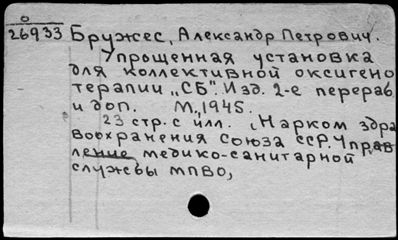 о
26933 Бружес, Александр Петрович.
Упрощенная установка
для коллективной оксигено
терапии „СБ". Изд. 2-е перераб.
и доп. М., 1945.
23 стр. с илл. (Нарком здра
воохранения Союза ССР. Управ
ление медико-санитарной
службы МПВО,